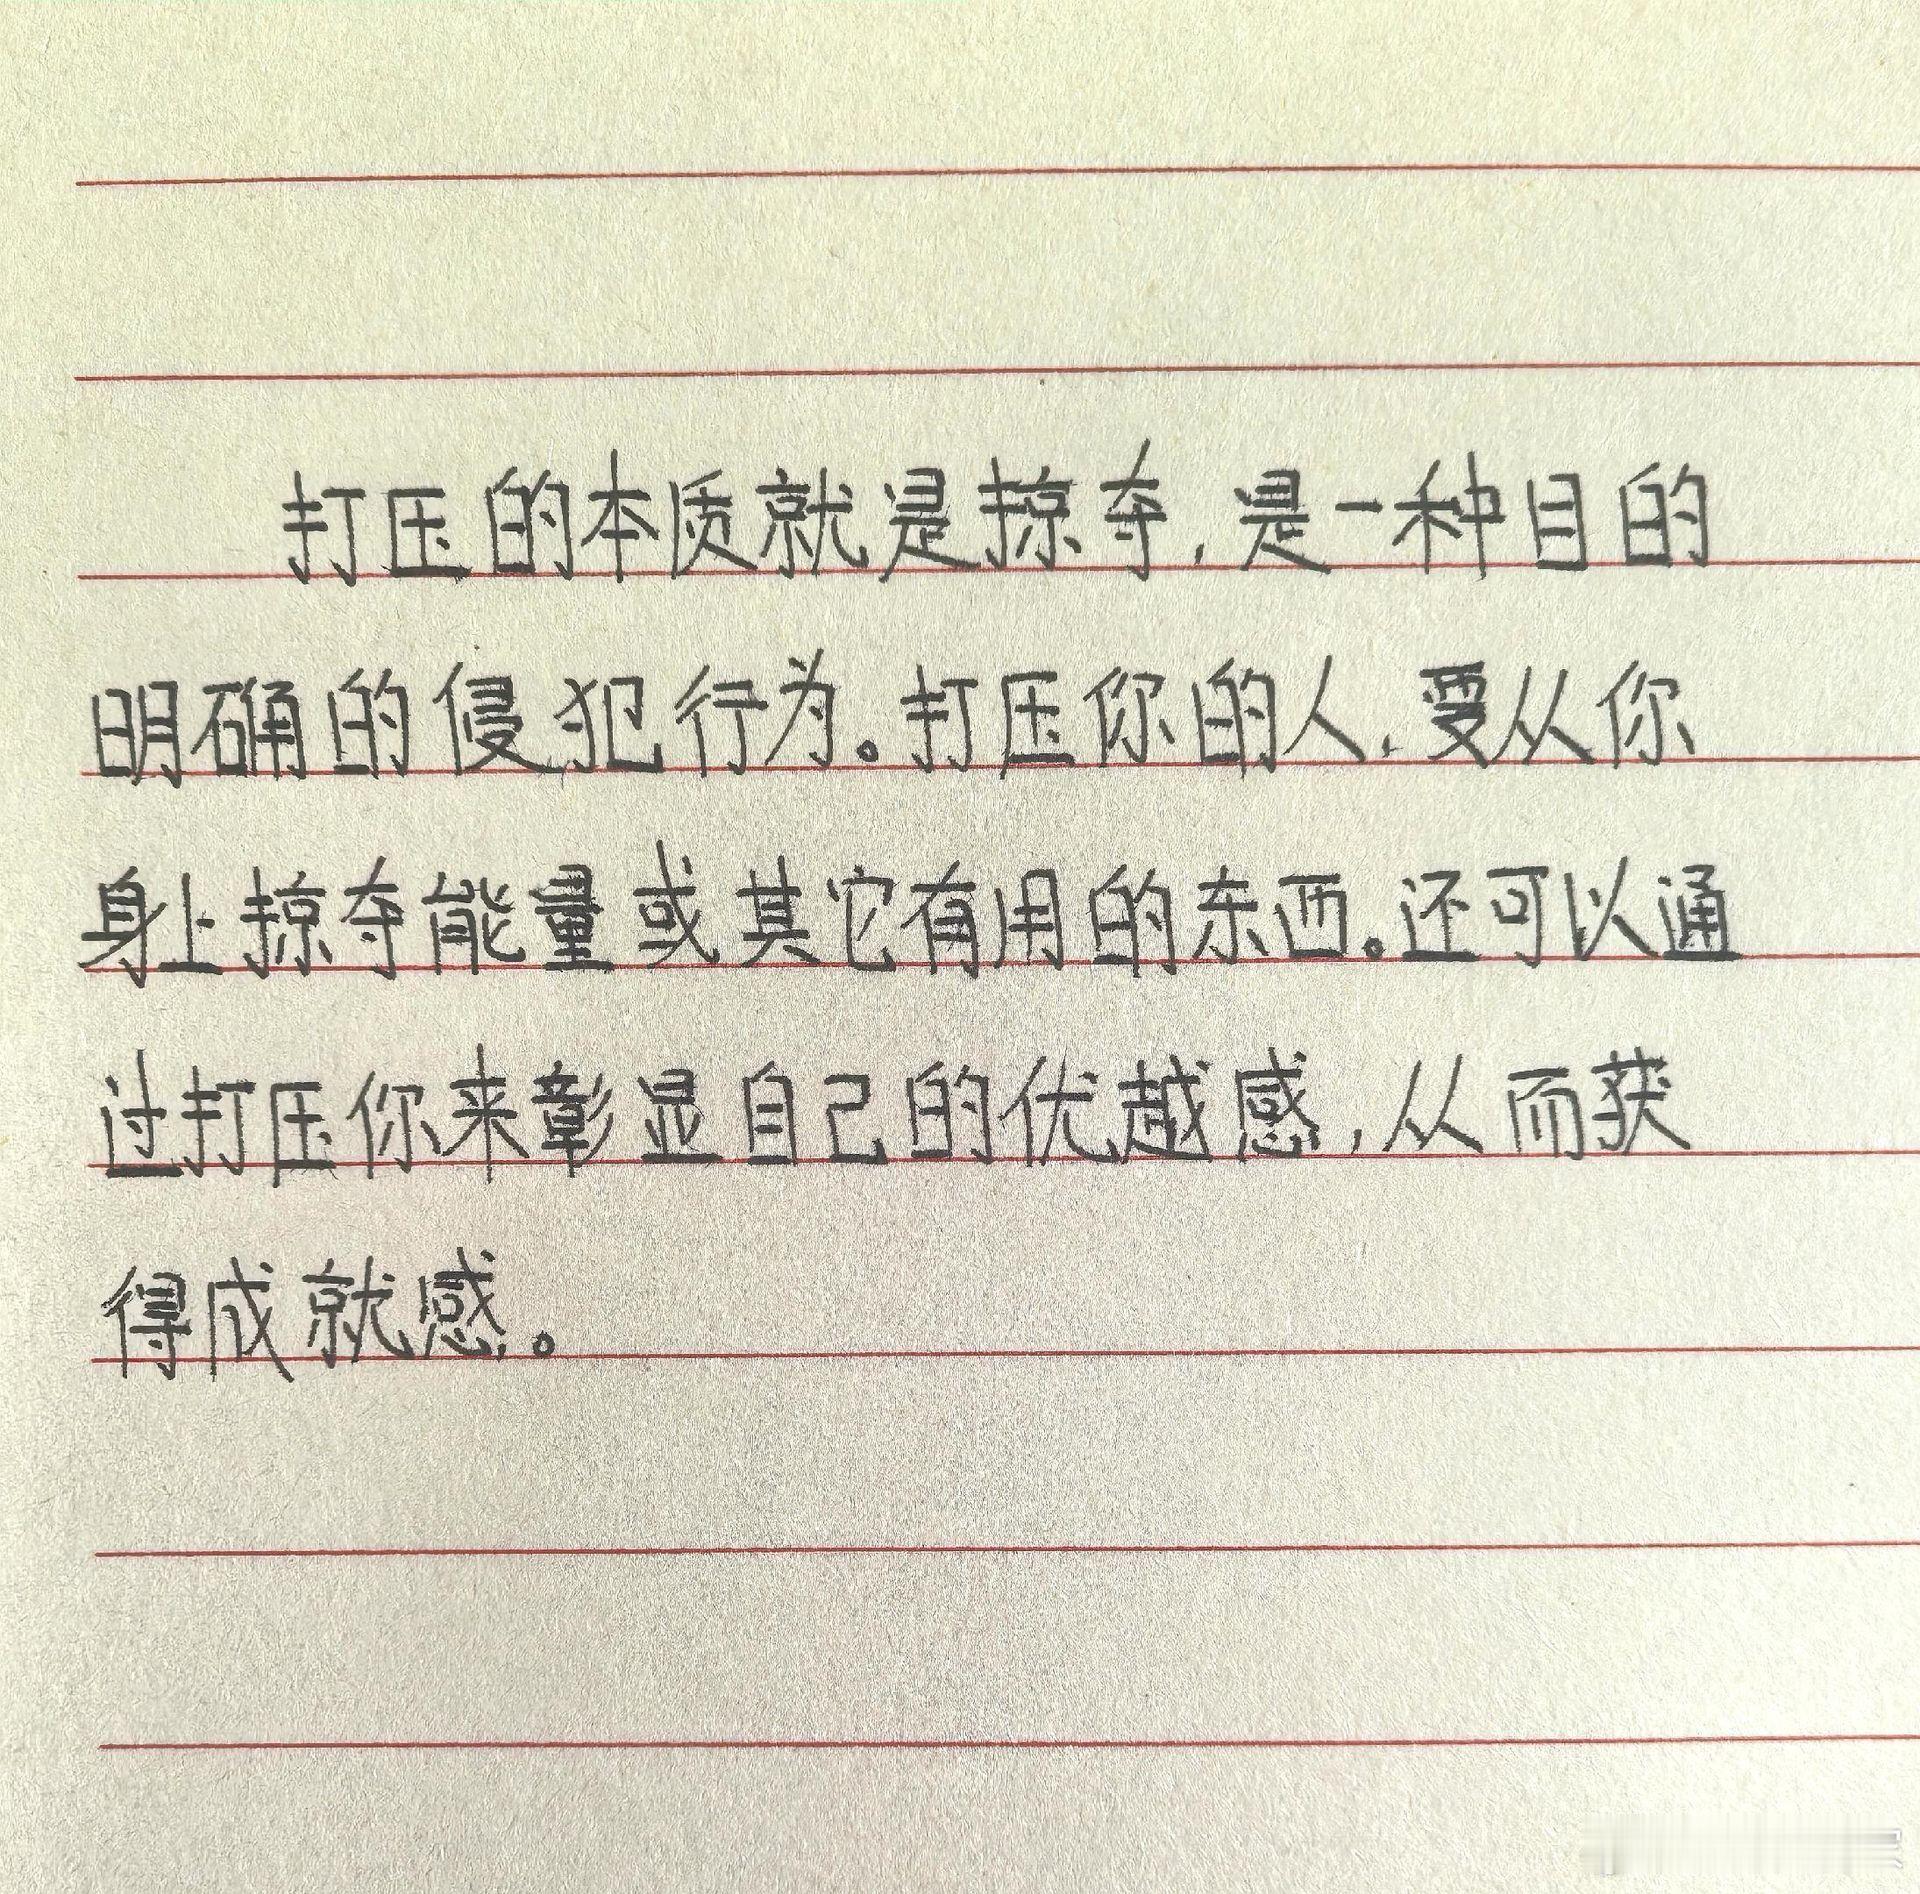 打压的本质就是掠夺，是一种目的
明确的侵犯行为。打压你的人，要从你
身上掠夺能量或其它有用的东西。还可以通
过打压你来彰显自己的优越感，从而获
得成就感。